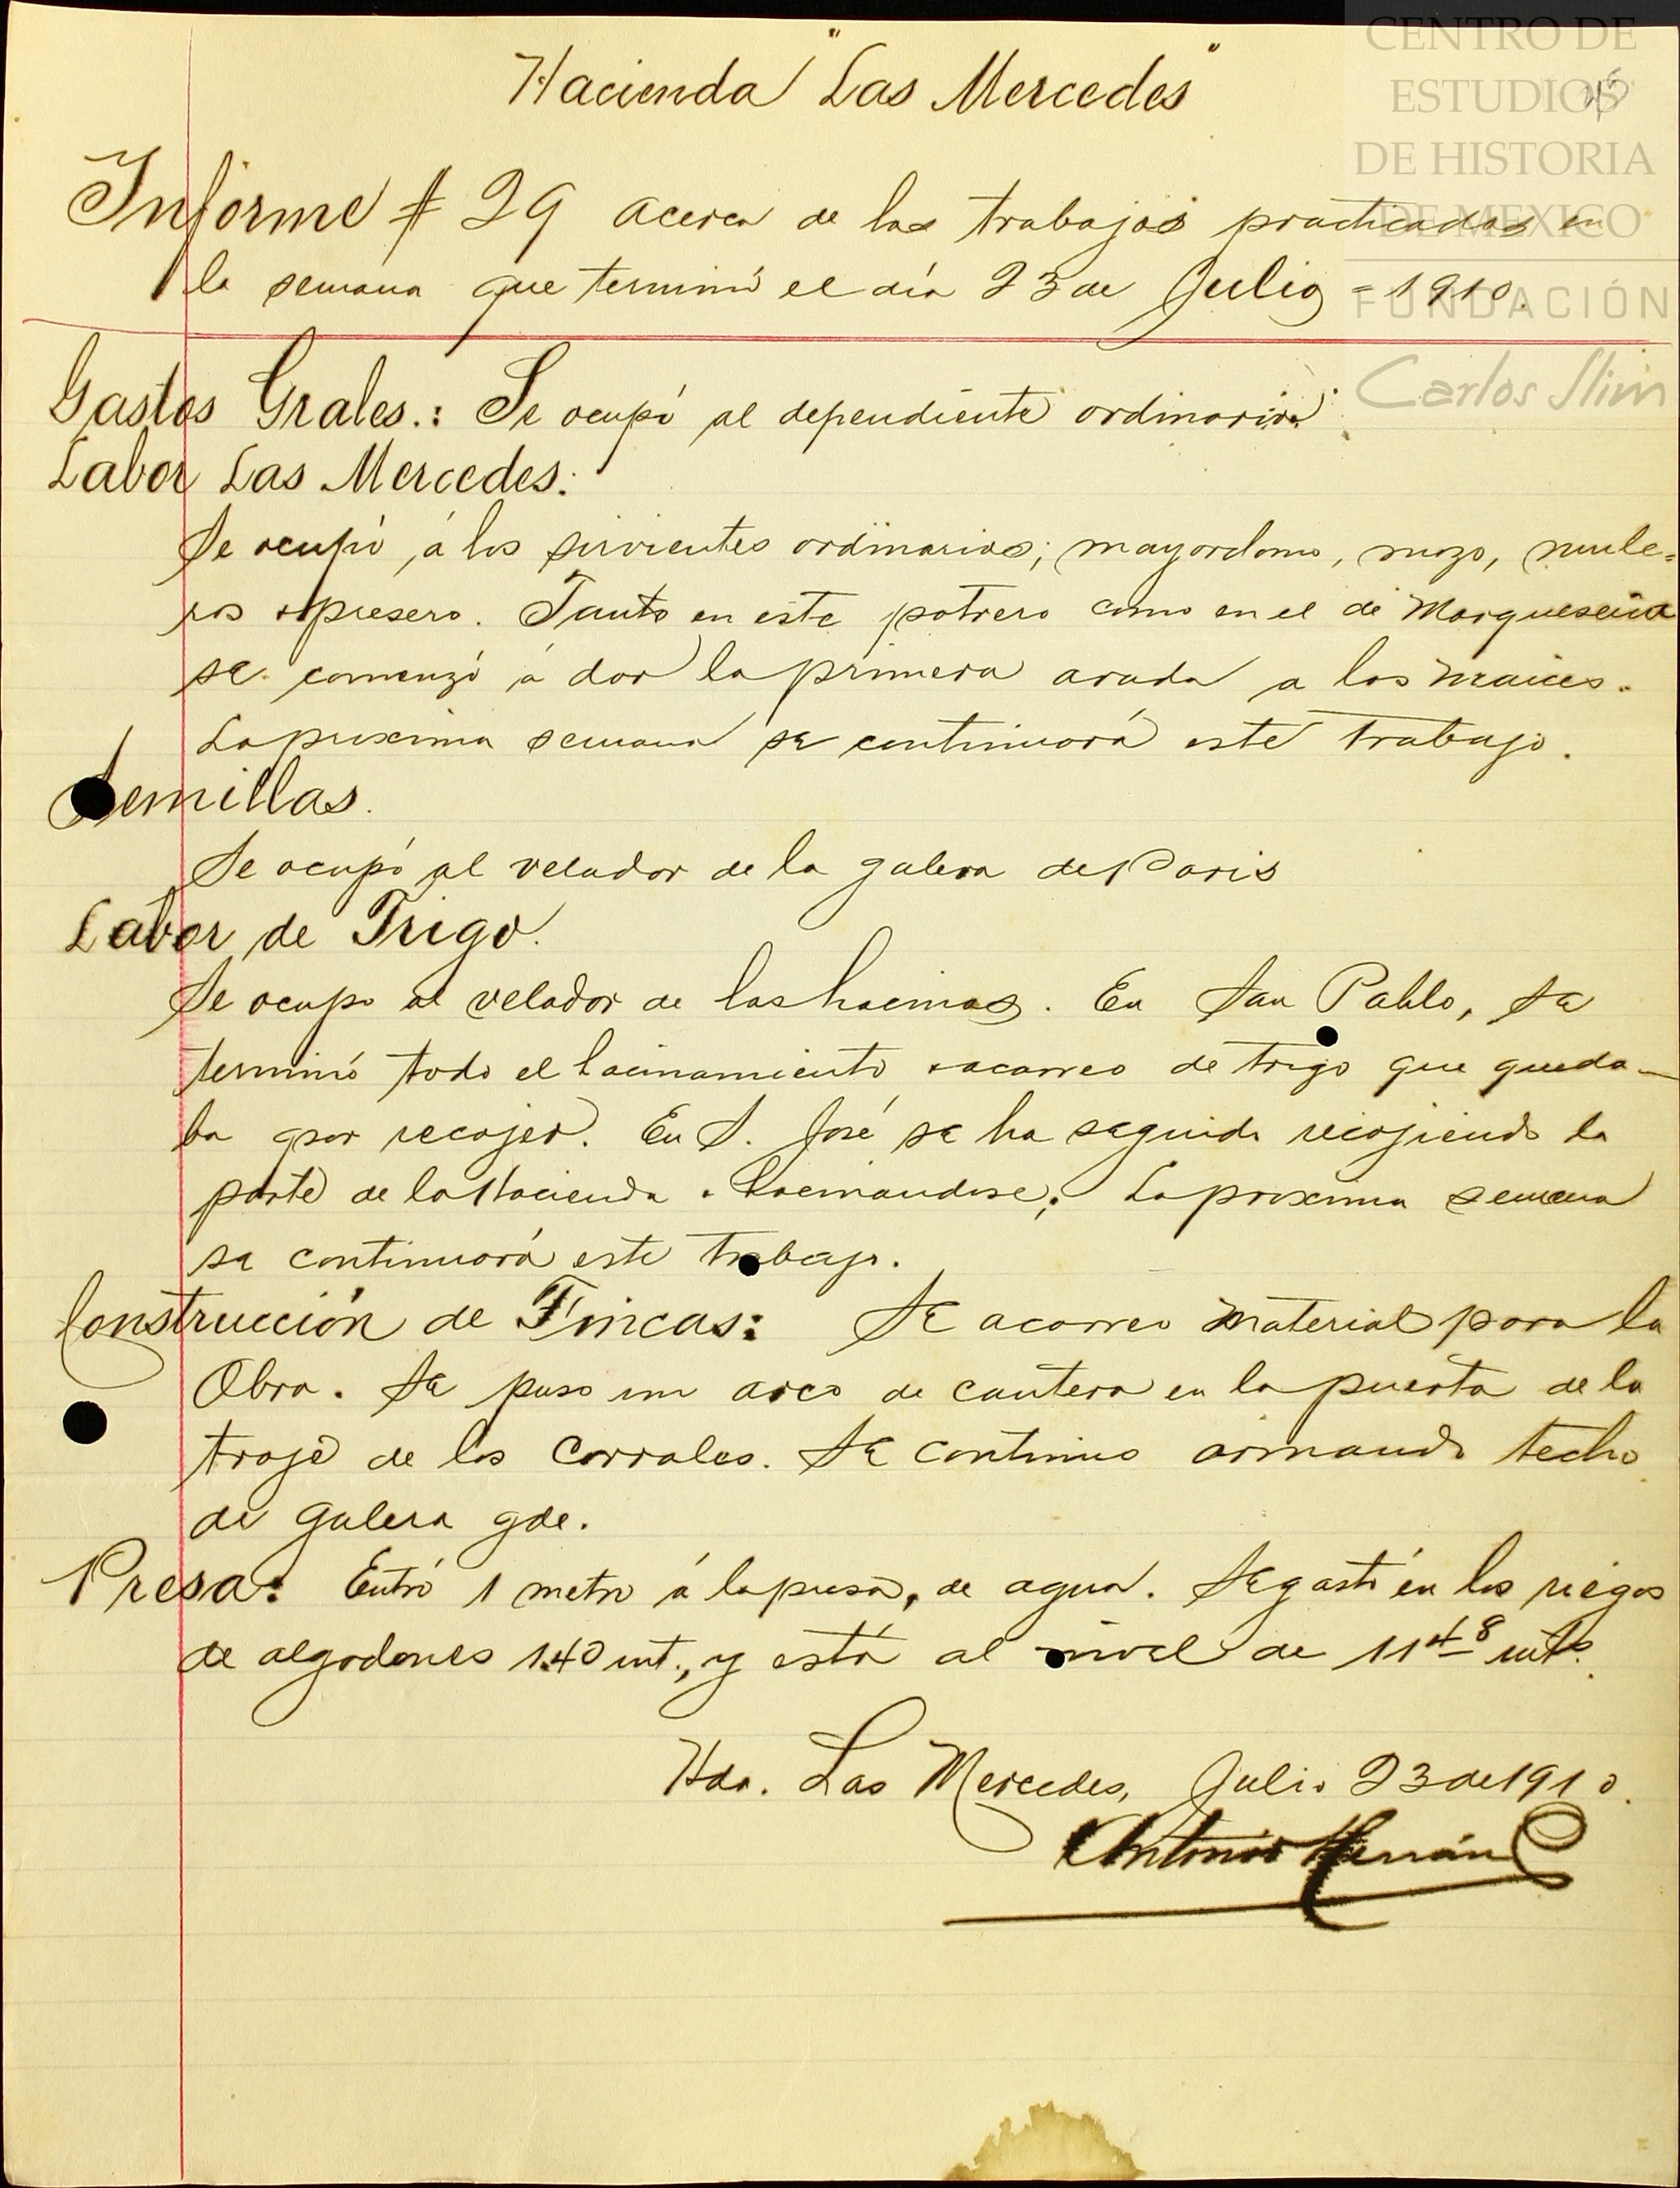 Hacienda "Las Mercedes"
CENTRO DE
ESTUDIOS
DE HISTORIA
DE MEXICO
FUNDACIÓN
Carlos Slim
45
Informe # 29 acerca de los trabajos practicados en
la semana que terminó el día 23 de Julio = 1910.
Gastos Grales.: Se ocupó al dependiente ordinario.
Labor Las Mercedes:
Se ocupó á los sirvientes ordinarios; mayordomo, mozo, mule=
ros y presero. Tanto en este potrero como en el de Marqueseña
se comenzó á dar la primera arada a los maices.
La proxima semana se continuará este trabajo.
Semillas.
Se ocupó al velador de la galera de Paris
Labor de Trigo.
Se ocupo al velador de las hacinas. En San Pablo, se
terminó todo el hacinamiento y acarreo de trigo que queda-
ba por recojer. En S. José se ha seguido recojiendo la
parte de la Hacienda y hacinandose; La proxima semana
se continuará este trabajo.
Construcción de Fincas: Se acarreo material para la
Obra. Se puso un arco de cantera en la puerta de la
troje de los corrales. Se continuo armando techo
de galera gde.
Presa: Entró 1 metro á la presa, de agua. Se gastó en los riegos
de algodones 1.40 mt., y está al nivel de 11 48 mts.
Hda. Las Mercedes, Julio 23 de 1910.
Antonio Hernán